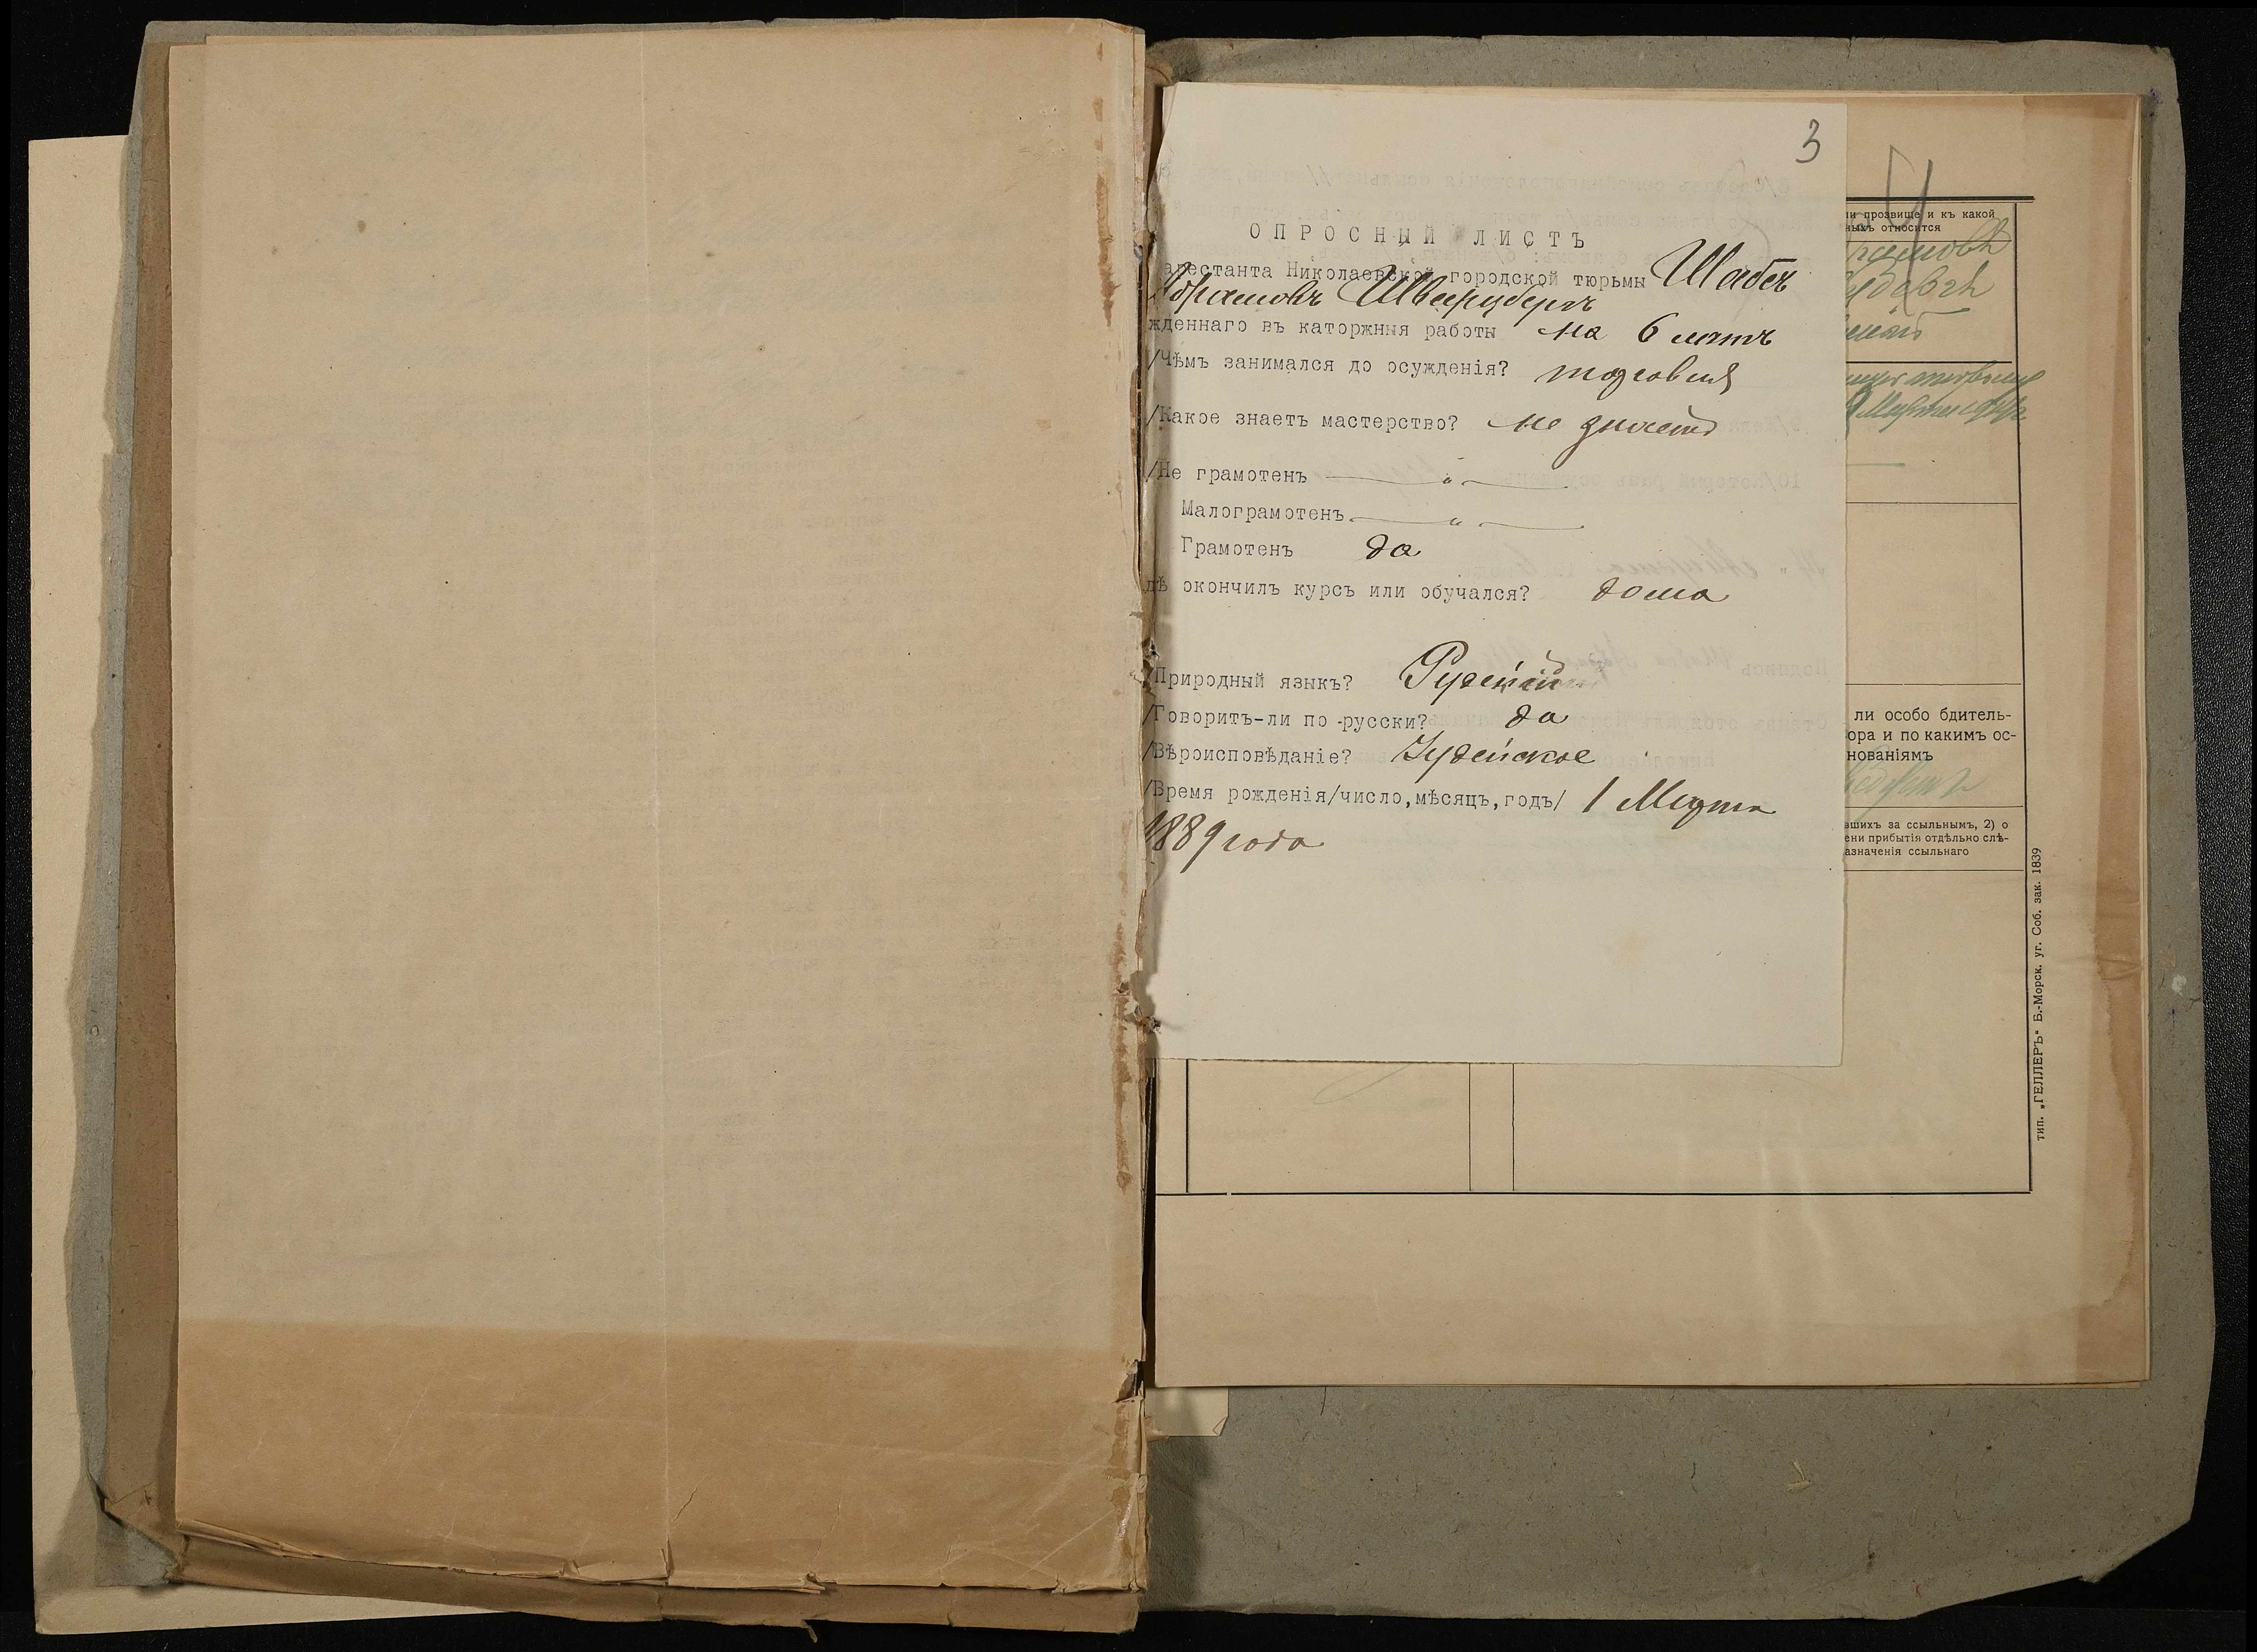 3
ОПРОСНЫЙ ЛИСТЪ
арестанта Николаевской городской тюрьмы Шабсъ
Абрамовъ Шварцбергъ
жденнаго въ каторжныя работы на 6 лѣтъ
/Чѣмъ занимался до осужденія? торговля
/Какое знаетъ мастерство? не знаетъ
/Не грамотенъ — " —
Малограмотенъ — " —
Грамотенъ да
дѣ окончилъ курсъ или обучался? дома
/Природный языкъ?
/Говоритъ-ли по -русски? да
/Вѣроисповѣданіе? Іудейское
/Время рожденія/число,мѣсяцъ,годъ/ 1 Марта
1889 года
ли прозвище и къ какой
ныхъ относится
ли особо бдитель-
ора и по какимъ ос-
нованіямъ
вшихъ за ссыльнымъ, 2) о
ени прибытія отдѣльно слѣ-
азначенія ссыльнаго
тип. „ГЕЛЛЕРЪ" Б.-Морск. уг. Соб. зак. 1839